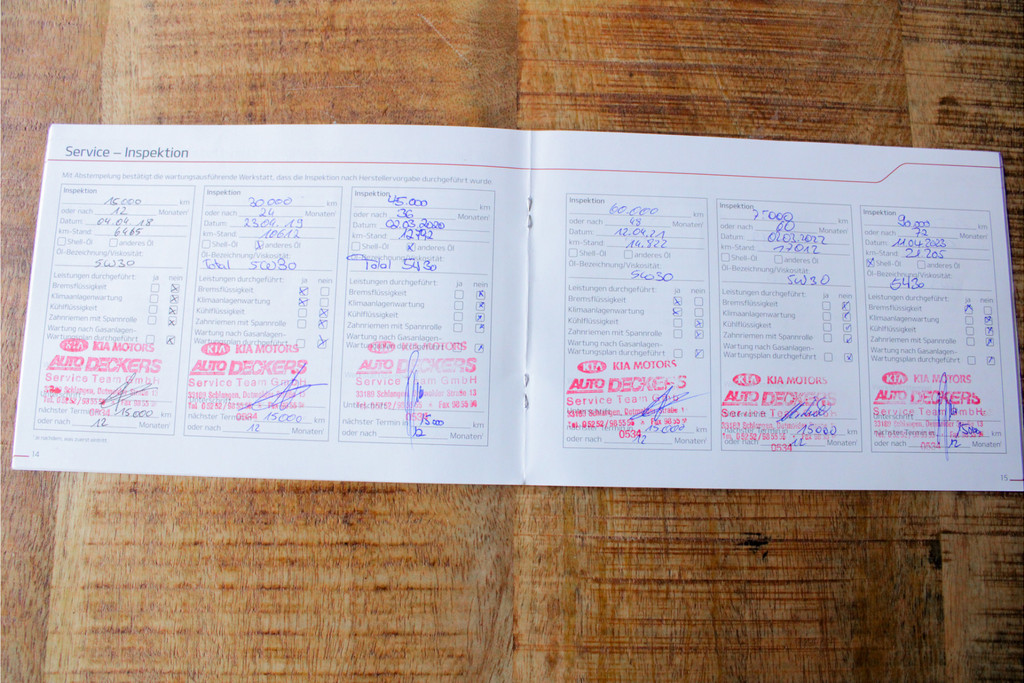 Service – Inspektion
Mit Abstempelung bestätigt die wartungsausführende Werkstatt, dass die Inspektion nach Herstellervorgabe durchgeführt wurde.
Inspektion
15.000 km
oder nach 12 Monaten¹
Datum: 04.04.18
km-Stand: 6465
Shell-Öl anderes Öl
Öl-Bezeichnung/Viskosität:
5W30
Leistungen durchgeführt: ja nein
Bremsflüssigkeit
Klimaanlagenwartung
Kühlflüssigkeit
Zahnriemen mit Spannrolle
Wartung nach Gasanlagen-
Wartungsplan durchgeführt
KIA KIA MOTORS
AUTO DECKERS
Service Team GmbH
33189 Schlangen,
0534
nächster Termin 15000 km
oder nach 12 Monaten¹
14
Inspektion
30.000 km
oder nach 24 Monaten¹
Datum: 23.04.19
km-Stand: 10612
Shell-Öl anderes Öl
Öl-Bezeichnung/Viskosität:
Total 5W30
Leistungen durchgeführt: ja nein
Bremsflüssigkeit
Klimaanlagenwartung
Kühlflüssigkeit
Zahnriemen mit Spannrolle
Wartung nach Gasanlagen-
Wartungsplan durchgeführt
KIA KIA MOTORS
AUTO DECKERS
Service Team GmbH
33189 Schlangen,
0534
15000 km
oder nach 12 Monaten¹
Inspektion
45.000 km
oder nach 36 Monaten¹
Datum: 02.03.2020
km-Stand: 12.792
Shell-Öl anderes Öl
Öl-Bezeichnung/Viskosität:
Total 5W30
Leistungen durchgeführt: ja nein
Bremsflüssigkeit
Klimaanlagenwartung
Kühlflüssigkeit
Zahnriemen mit Spannrolle
Wartung nach Gasanlagen-
Wartungsplan durchgeführt
KIA KIA MOTORS
AUTO DECKERS
Service Team GmbH
33189 Schlangen,
0534
nächster Termin 15000 km
oder nach 12 Monaten¹
Inspektion
60.000 km
oder nach 48 Monaten¹
Datum: 12.04.21
km-Stand: 14.822
Shell-Öl anderes Öl
Öl-Bezeichnung/Viskosität:
5W30
Leistungen durchgeführt: ja nein
Bremsflüssigkeit
Klimaanlagenwartung
Kühlflüssigkeit
Zahnriemen mit Spannrolle
Wartung nach Gasanlagen-
Wartungsplan durchgeführt
KIA KIA MOTORS
AUTO DECKERS
Service Team GmbH
33189 Schlangen,
nächster Termin 15000 km
oder nach 12 Monaten¹
0534
Inspektion
75000 km
oder nach 60 Monaten¹
Datum:
km-Stand: 17012
Shell-Öl anderes Öl
Öl-Bezeichnung/Viskosität:
5W30
Leistungen durchgeführt: ja nein
Bremsflüssigkeit
Klimaanlagenwartung
Kühlflüssigkeit
Zahnriemen mit Spannrolle
Wartung nach Gasanlagen-
Wartungsplan durchgeführt
KIA KIA MOTORS
AUTO DECKERS
Service Team GmbH
33189 Schlangen,
nächster Termin 15000 km
oder nach 12 Monaten¹
0534
Inspektion
90.000 km
oder nach 72 Monaten¹
Datum: 11.04.2023
km-Stand: 21.205
Shell-Öl anderes Öl
Öl-Bezeichnung/Viskosität:
5W30
Leistungen durchgeführt: ja nein
Bremsflüssigkeit
Klimaanlagenwartung
Kühlflüssigkeit
Zahnriemen mit Spannrolle
Wartung nach Gasanlagen-
Wartungsplan durchgeführt
KIA KIA MOTORS
AUTO DECKERS
Service Team GmbH
33189 Schlangen,
nächster Termin 15000 km
oder nach 12 Monaten¹
0534
15